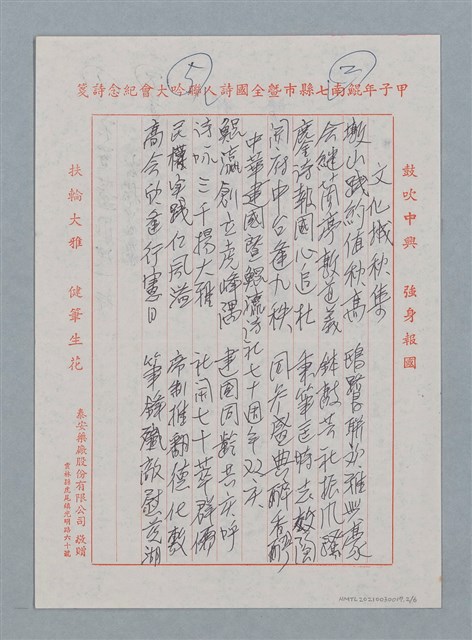 甲子年鯤南七縣市暨全國詩人聯吟大會紀念詩箋
鼓吹中興 強身報國
文化城秋集
墩山踐約值秋高 鷗鷺聯翩雅興豪
會繼蘭亭斯道義 鉢敲芸社振風騷
鏖詩報國心追杜 秉筆匡時志效陶
開府中台逢九秩 同參盛典醉香醪
中華建國暨鯤瀛詩社七十週年双慶
鯤瀛創立虎峰隅 建國同齡共慶呼
詩詠三千揚大雅 社開七十萃群儒
民權實踐仁風溢 帝制推翻德化敷
高會欣逢行憲日 筆鋒殲敵慰慈湖
扶輪大雅 健筆生花
泰安藥廠股份有限公司 敬贈
雲林縣虎尾鎮光明路六十號
NMTL20210030019, 2/8